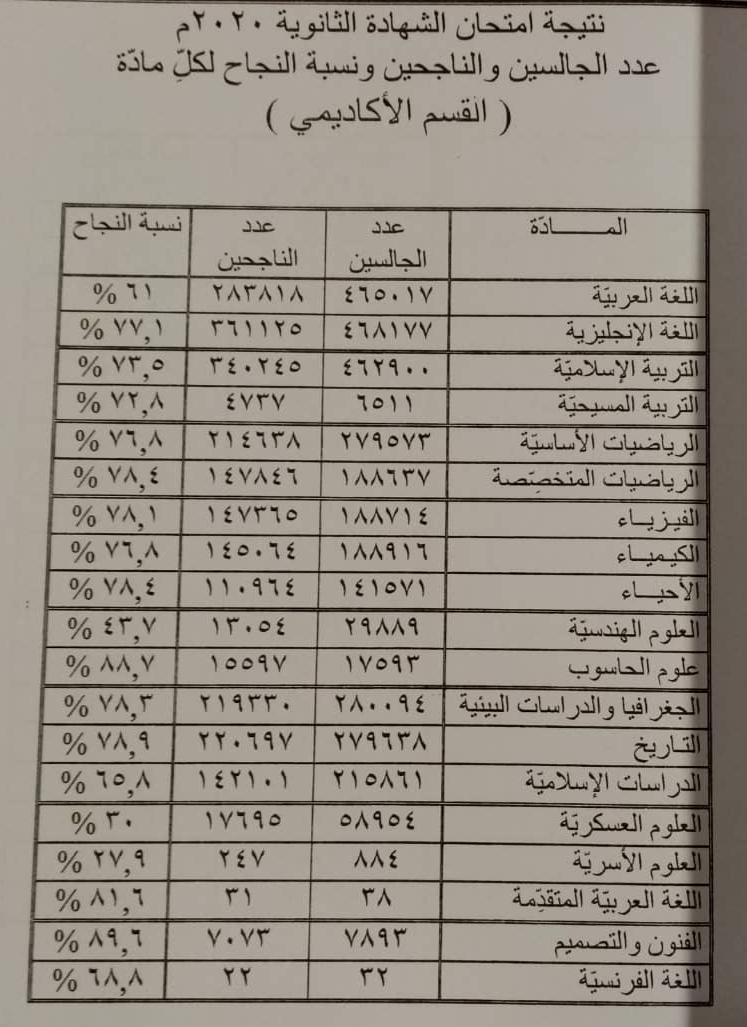 نتيجة امتحان الشهادة الثانوية ٢٠٢٠م
عدد الجالسين والناجحين ونسبة النجاح لكلّ مادّة
( القسم الأكاديمي )
المـــــادّة عدد الجالسين عدد الناجحين نسبة النجاح
اللغة العربيّة ٤٦٥٠١٧ ٢٨٣٨١٨ ٦١ %
اللغة الإنجليزية ٤٦٨١٧٧ ٣٦١١٢٥ ٧٧,١ %
التربية الإسلاميّة ٤٦٢٩٠٠ ٣٤٠٢٤٥ ٧٣,٥ %
التربية المسيحيّة ٦٥١١ ٤٧٣٧ ٧٢,٨ %
الرياضيات الأساسيّة ٢٧٩٥٧٣ ٢١٤٦٣٨ ٧٦,٨ %
الرياضيات المتخصّصة ١٨٨٦٣٧ ١٤٧٨٤٦ ٧٨,٤ %
الفيزيــاء ١٨٨٧١٤ ١٤٧٣٦٥ ٧٨,١ %
الكيميــاء ١٨٨٩١٦ ١٤٥٠٦٤ ٧٦,٨ %
الأحيـــاء ١٤١٥٧١ ١١٠٩٦٤ ٧٨,٤ %
العلوم الهندسيّة ٢٩٨٨٩ ١٣٠٥٤ ٤٣,٧ %
علوم الحاسوب ١٧٥٩٣ ١٥٥٩٧ ٨٨,٧ %
الجغرافيا والدراسات البيئية ٢٨٠٠٩٤ ٢١٩٣٣٠ ٧٨,٣ %
التـاريخ ٢٧٩٦٣٨ ٢٢٠٦٩٧ ٧٨,٩ %
الدراسات الإسلاميّة ٢١٥٨٦١ ١٤٢١٠١ ٦٥,٨ %
العلوم العسكريّة ٥٨٩٥٤ ١٧٦٩٥ ٣٠ %
العلوم الأسريّة ٨٨٤ ٢٤٧ ٢٧,٩ %
اللغة العربيّة المتقدّمة ٣٨ ٣١ ٨١,٦ %
الفنون والتصميم ٧٨٩٣ ٧٠٧٣ ٨٩,٦ %
اللغة الفرنسيّة ٣٢ ٢٢ ٦٨,٨ %